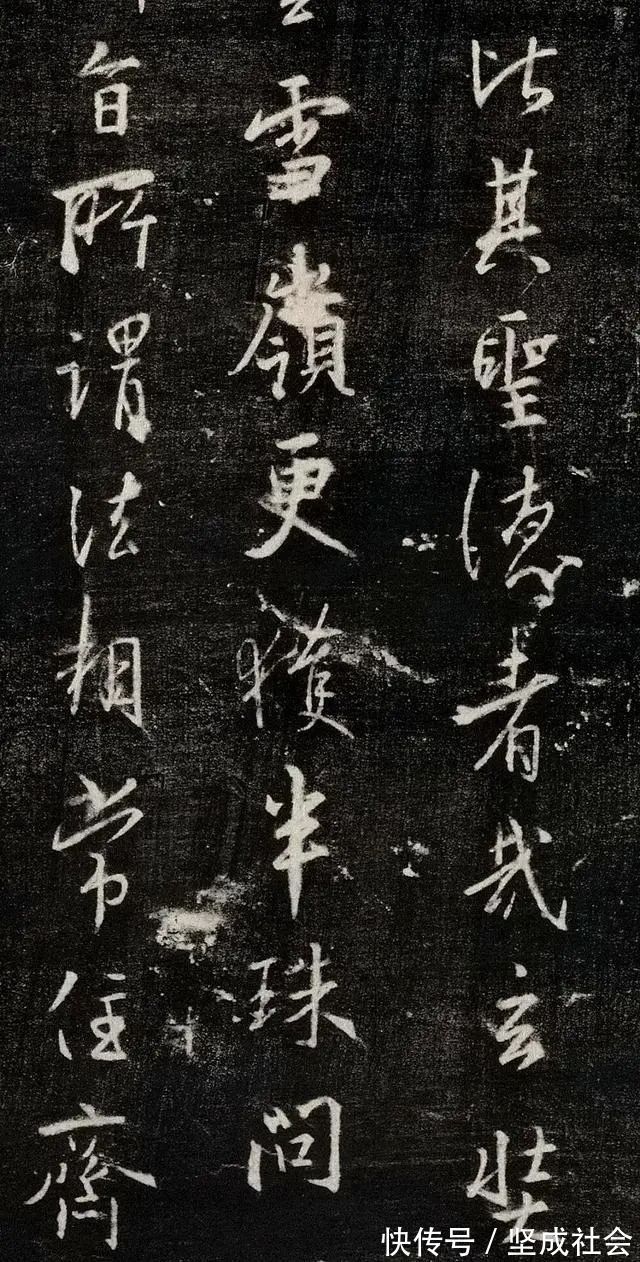 比其聖德者哉玄奘
雪嶺更獲半珠問
旨所謂法相常住齊
快传号 / 坚成社会